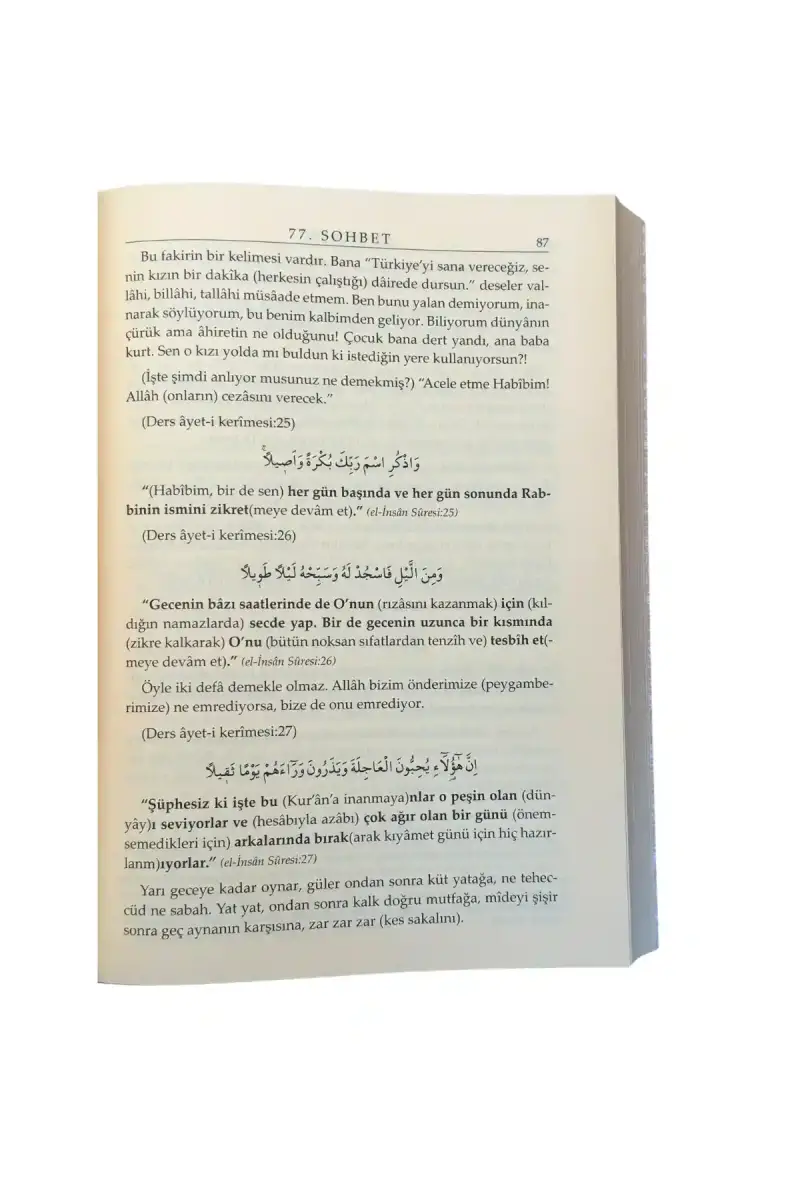 77. SOHBET 87
Bu fakirin bir kelimesi vardır. Bana “Türkiye’yi sana vereceğiz, se-
nin kızın bir dakîka (herkesin çalıştığı) dâirede dursun.” deseler val-
lâhi, billâhi, tallâhi müsâade etmem. Ben bunu yalan demiyorum, ina-
narak söylüyorum, bu benim kalbimden geliyor. Biliyorum dünyânın
çürük ama âhiretin ne olduğunu! Çocuk bana dert yandı, ana baba
kurt. Sen o kızı yolda mı buldun ki istediğin yere kullanıyorsun?!
(İşte şimdi anlıyor musunuz ne demekmiş?) “Acele etme Habîbim!
Allâh (onların) cezâsını verecek.”
(Ders âyet-i kerîmesi:25)
وَاذْكُرِ اسْمَ رَبِّكَ بُكْرَةً وَاَص۪يلًاۚ
“(Habîbim, bir de sen) her gün başında ve her gün sonunda Rab-
binin ismini zikret(meye devâm et).” (el-İnsân Sûresi:25)
(Ders âyet-i kerîmesi:26)
وَمِنَ الَّيْلِ فَاسْجُدْ لَهُ وَسَبِّحْهُ لَيْلًا طَو۪يلًا
“Gecenin bâzı saatlerinde de O’nun (rızâsını kazanmak) için (kıl-
dığın namazlarda) secde yap. Bir de gecenin uzunca bir kısmında
(zikre kalkarak) O’nu (bütün noksan sıfatlardan tenzîh ve) tesbîh et(-
meye devâm et).” (el-İnsân Sûresi:26)
Öyle iki defâ demekle olmaz. Allâh bizim önderimize (peygambe-
rimize) ne emrediyorsa, bize de onu emrediyor.
(Ders âyet-i kerîmesi:27)
اِنَّ هٰٓؤُ۬لَٓاءِ يُحِبُّونَ الْعَاجِلَةَ وَيَذَرُونَ وَرَٓاءَهُمْ يَوْمًا ثَق۪يلًا
“Şüphesiz ki işte bu (Kur’ân’a inanmaya)nlar o peşin olan (dün-
yây)ı seviyorlar ve (hesâbıyla azâbı) çok ağır olan bir günü (önem-
semedikleri için) arkalarında bırak(arak kıyâmet günü için hiç hazır-
lanm)ıyorlar.” (el-İnsân Sûresi:27)
Yarı geceye kadar oynar, güler ondan sonra küt yatağa, ne tehec-
cüd ne sabah. Yat yat, ondan sonra kalk doğru mutfağa, mîdeyi şişir
sonra geç aynanın karşısına, zar zar zar (kes sakalını).